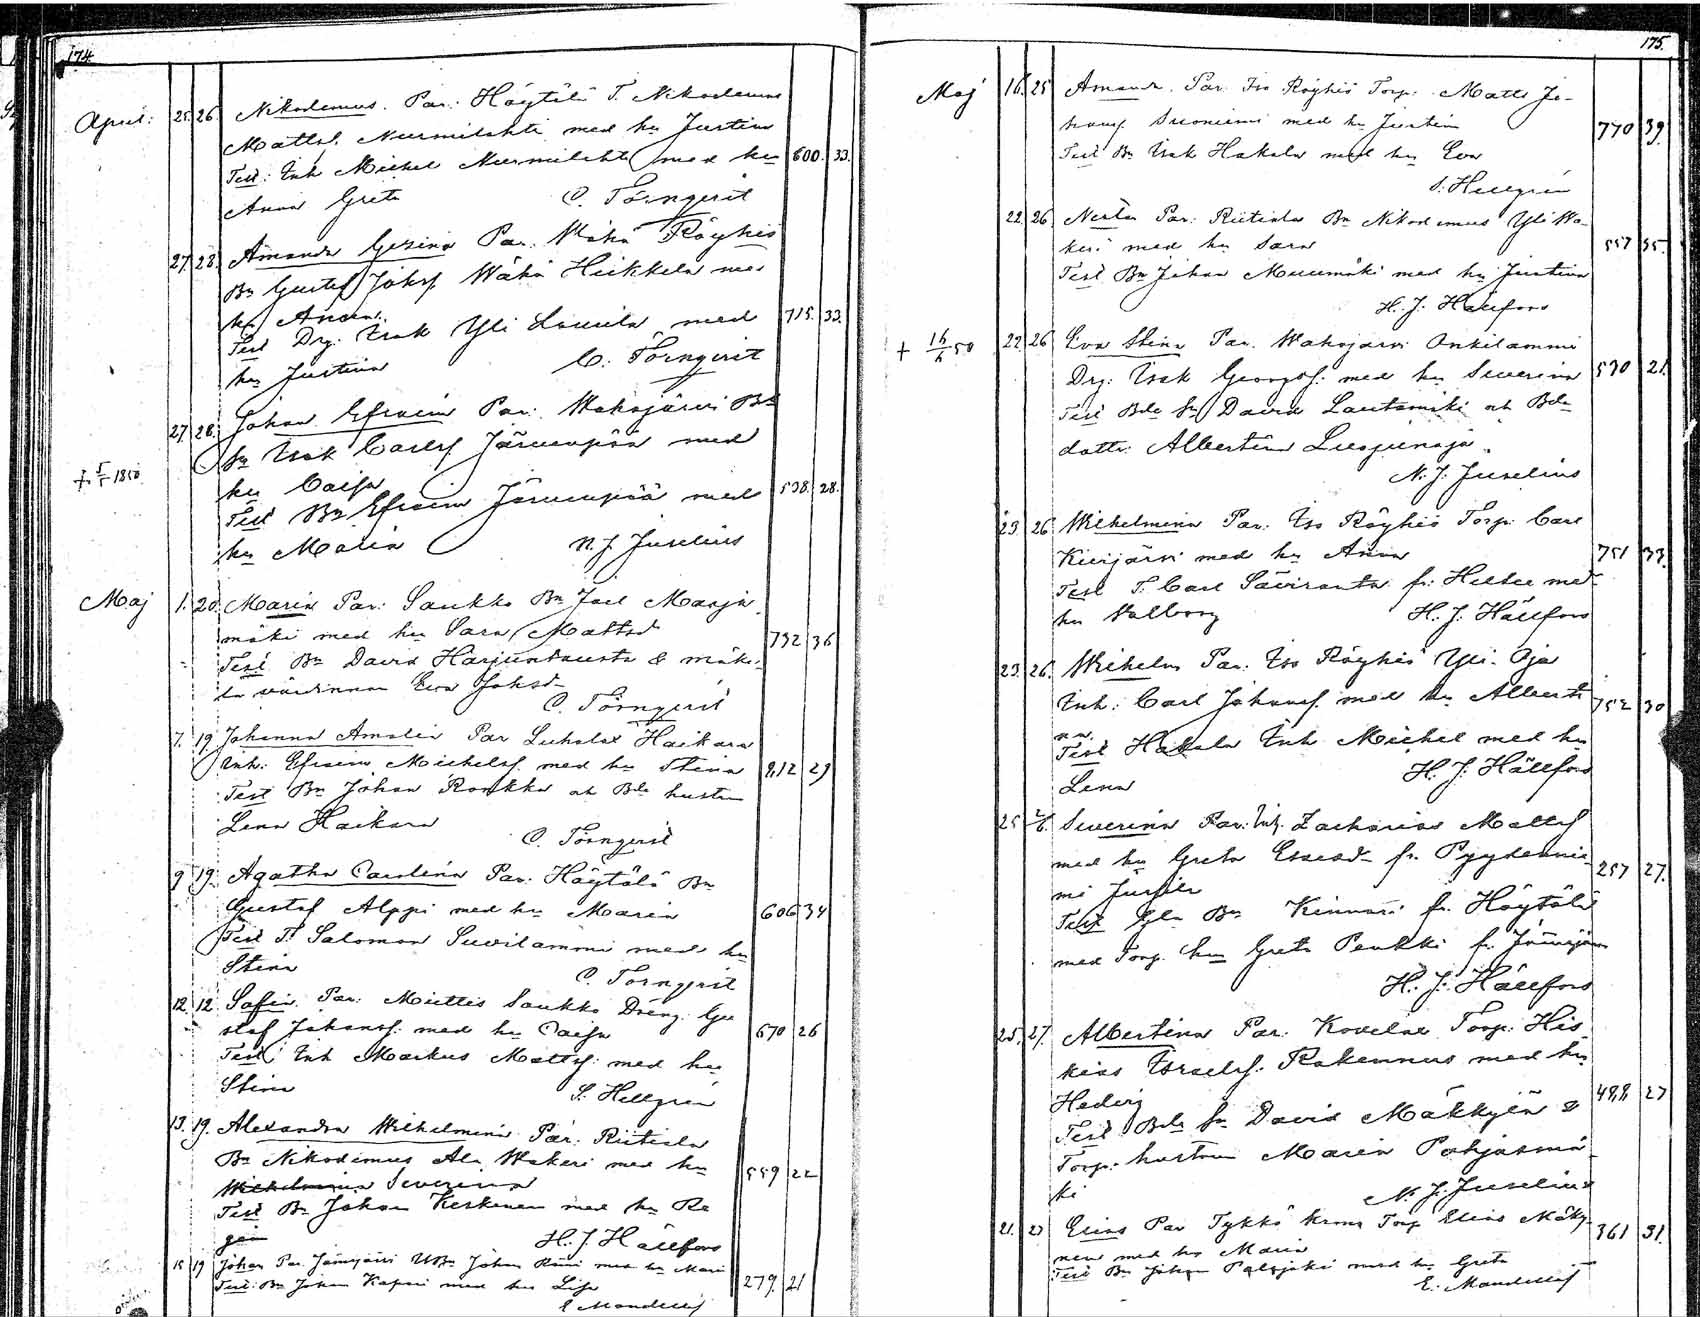 174.
April. 25. 26. Nikodemus. Par: Höytölä T. Nikodemus
Mattsf. Nurmilahti med hu Justina
Test: Inh Michel Nurmilahti med hu 600. 33.
Anna Greta C. Törnqvist
27. 28. Amanda Gezina Par. Wähä Röyhiö
Bn Gustaf Johsf Wähä Heikkela med
hu Anna. 715. 33.
Test Drg. Isak Yli Louvila med
hu Justina C. Törnqvist
27. 28. Johan Efraim Par: Wahojärvi Bde
Sn Isak Carlsf Järvenpää med
+ 5/5 1850. hu Caisa 538. 28.
Test Bn Efraim Järvenpää med
hu Maria N. J. Juselius
Maj 1. 20. Maria Par: Saukko Bn Joel Marja
mäki med hu Sara Mattsd 732 36
Test Bn David Harjuntausta & mäke
la värdinnan Eva Johsd
C. Törnqvist
7. 19. Johanna Amalia Par Haikara
Inh: Efraim Michelsf. med hu Stina 812 29
Test Bn Johan Ronkka och Bde hustru
Lena Haikara
C. Törnqvist
9 19. Agatha Carolina Par. Höytölä Bn
Gustaf Alppi med hu Maria 606 34
Test T. Salomon Suvilammi med hu
Stina C. Törnqvist
12. 12 Sofia. Par: Miettis Saukko Dräng. Gu
staf Johansf. med hu Caisa 670 26
Test: Inh Markus Mattsf. med hu
Stina S. Hellgrén
13. 19. Alexandra Wilhelmina Par: Riitiala
Bn Nikodemus Ala Wakeri med hu 559 22
Wilhelmina Severina
Test Bn Johan Keskinen med hu Re
gina H. J. Hällfors
15 19 Johan Par. Jämijärvi Bn Johan med hu Maria
Test: Bn Johan Kapari med hu Lisa 279. 21
E Mandellöf
175.
Maj 16. 25 Amanda. Par. Iso Röyhiö Torp. Matts Jo-
hansf. Suoniemi med hu Justina 770 39.
Test Bn Isak Hakala med hu Eva
S. Hellgrén
22. 26 Nestor Par: Riitiala Bn Nikodemus Yli Wa-
keri med hu Sara 557 35.
Test Bn Johan Muumäki med hu Justina
H. J. Hällfors
22. 26 Eva Stina Par. Wahojärvi Onkilammi
Drg: Isak Georgsf. med hu Severina 530 21.
Test Bde Sn David Lautamäki och Bde
dottr: Albertina Luojunaja
N. J. Juselius
23 26 Wilhelmina Par: Iso Röyhiö Torp. Carl
Kurjärvi med hu Anna 751 33.
Test T. Carl Saviranta fr. med
hu Valborg H. J. Hällfors
23. 26. Wilhelm Par. Iso Röyhiö Yli-Oja
Inh: Carl Johansf. med hu Alberti 752 30
na.
Test Hakala Inh Michel med hu
Lena H. J. Hällfors
25 Severina Par: Inh. Zacharias Mattsf
med hu Greta Esaiasd. fr. Pyydennie- 257 27.
mi
Test Bn Kinnari fr. Höytölä
med Torp. hu Greta Penkki fr. Jämijärvi
H. J. Hällfors
25. 27. Albertina Par. Kovelax Torp. His
kias Israelsf. Rakennus med hu
Hedvig 488 27
Test Bde Sn David Mäkkylä &
Torp. hustrun Maria Pohjasmä
ki N. J. Juselius
21. 27 Elias Par Tykkö krono Torp Elias Mäky-
nen med hu Maria 361 31.
Test Bn Johan med hu Greta
E. Mandellöf